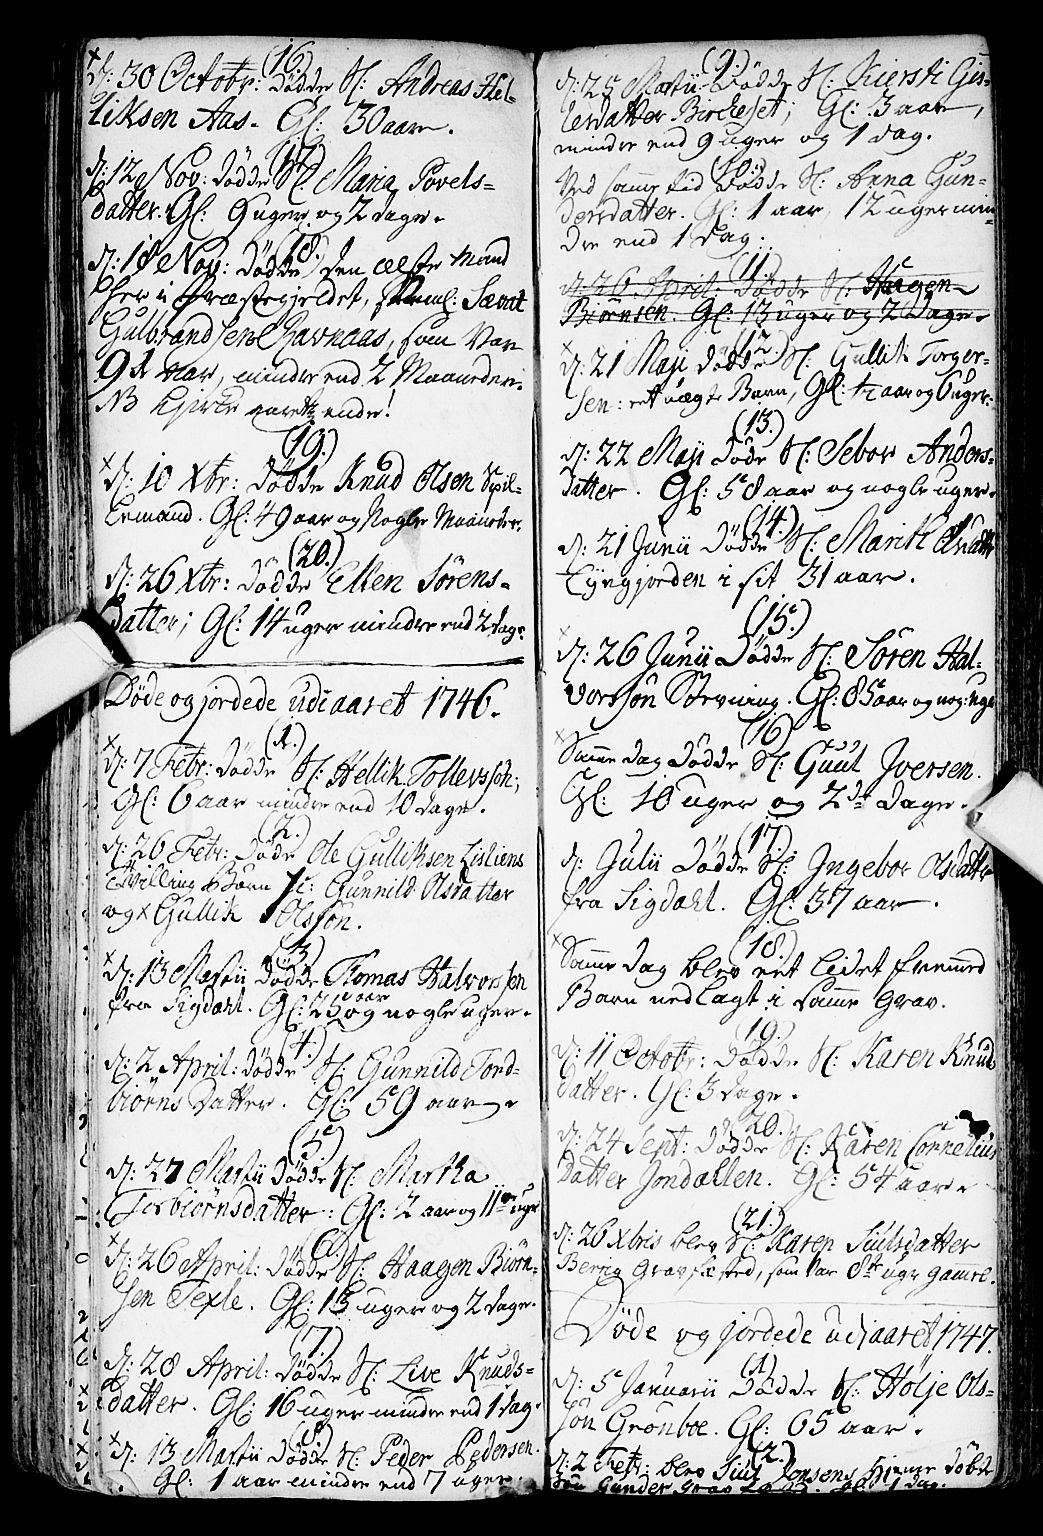 (16.)
D: 30 Octobr: Dödde Sl: Andreas Hel-
liksen Aas. Gl: 30 aar.
(17)
D: 12 Nov: Dödde Sl: Maria Povels-
datter. Gl: 9 uger og 2 dage.
(18.)
D: 18 Nov: Dödde den ælste Mand
her i Præstegieldet, Sævat
Gulbrandsen Ravnaas, som Var
91 aar, mindre end 2 Maaneder.
NB Kircke aarets ende!
(19.)
D: 10 Xbr: Dödde Knud Olsen Spil-
lemand. Gl: 49 aar og Nogle Maaneder.
(20.)
D: 26 Xbr: Dödde Ellen Sörens-
datter; Gl: 14 uger mindre end 2 dage.
Döde og jordede udi aaret 1746.
(1.)
D: 7 Febr: Dödde Sl: Hellik Tollevssön;
Gl: 6 aar mindre end 10 dage.
(2.)
D: 26 Febr: Döde Ole Gulliksen Lisliens
Tvilling Börn Gunnild Olsdatter
og Gullik Olssön.
(3.)
D: 13 Martii Dödde Tomas Halvorsen
fra Sigdahl. Gl: 25 aar og nogle uger.
(4.)
D: 2 April: Dödde Sl: Gunnild Tord-
biörns Datter. Gl: 59 aar.
(5.)
D: 27 Martii Dödde Sl: Martha
Torbiörnsdatter: Gl: 2 aar og 11 uger
(6.)
D: 26 April: Dödde Sl: Haagen Biörn-
sen Texle. Gl: 13 uger og 2 dage.
(7.)
D: 28 April: Dödde Sl: Live Knuds-
datter. Gl: 16 uger mindre end 1 dag.
(8)
D: 13 Martii Dödde Sl: Peder Pedersen.
Gl: 1 aar mindre end 7 uger.
(9.)
D: 25 Martii Dödde Sl: Kiersti Gis-
lersdatter Birckeset; Gl: 3 aar,
mindre end 9 uger og 1 dag.
(10)
Ved samme tid Dödde Sl: Anna Gun-
dersdatter. Gl: 1 aar, 12 uger min-
dre end 1 dag.
(11.)
D: 26 April: Dödde Sl: Haagen
Biörnsen. Gl: 13 uger og 2 Dage.
(12)
D: 21 Maji Dödde Sl: Gullik Torger-
sen: eet uægte Barn, Gl: 1/2 aar og 6 uger.
(13.)
D: 22 Maji Döde Sl: Sebor Anders-
datter. Gl: 58 aar og nogle uger.
(14.)
D: 21 Junii Dödde Sl: Marith Olsdatter
Lyngjorden i sit 31 aar.
(15.)
D: 26 Junii Dödde Sl: Sören Hal-
vorssön Sörvning. Gl: 85 aar og nog: uger
(16)
Samme dag Dödde Sl: Guul Iversen.
Gl: 10 uger og 2de Dage.
(17.)
D: Julii Dödde Sl: Ingebor Olsdatter
fra Sigdahl. Gl: 37 aar.
(18.)
Samme dag blev eet lidet fremmed
Barn nedlagt i samme grav.
(19.)
D: 11 Octobr: Dödde Sl: Karen Knuds
datter. Gl: 3 dage.
20.
D: 24 Sept: Dödde Sl: Karen Cornelius
Datter Jondallen. Gl: 54 aar.
(21.)
D: 26 Xbris blev Sl: Karen Siulsdatter
Berrig Gravfæsted, som var 8te uger gammel.
Döde og jordede udi aaret 1747.
(1)
D: 5 Januarii Dödde Sl: Hölje Ols-
sön Grönboe. Gl: 65 aar.
(2.)
D: 2 Febr: blev Siul Jensens hjemme döbte
Sön Gunder Grav fæsted. Gl: 1 dag.